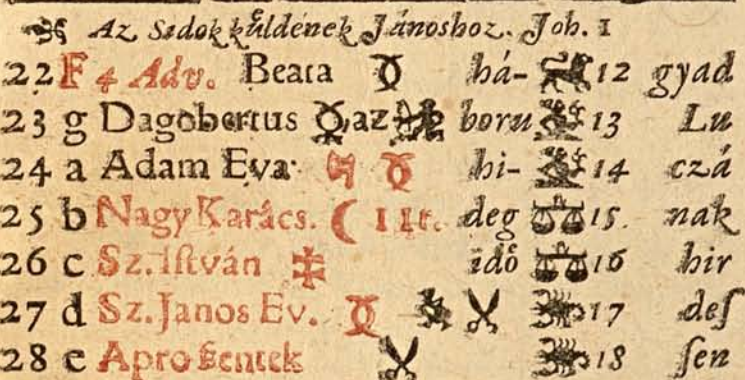 Az Sidok kůldének Jánoshoz. Joh. 1
22 F 4 Adv. Beata há- 12 gyad
23 g Dagobertus az boru 13 Lu
24 a Adam Eva hi- 14 czá
25 b Nagy Karács. ☾ 11r. deg 15. nak
26 c Sz. Iſtván idő 16 hir
27 d Sz. Janos Ev. 17 deſ
28 e Apro ſentek 18 ſen